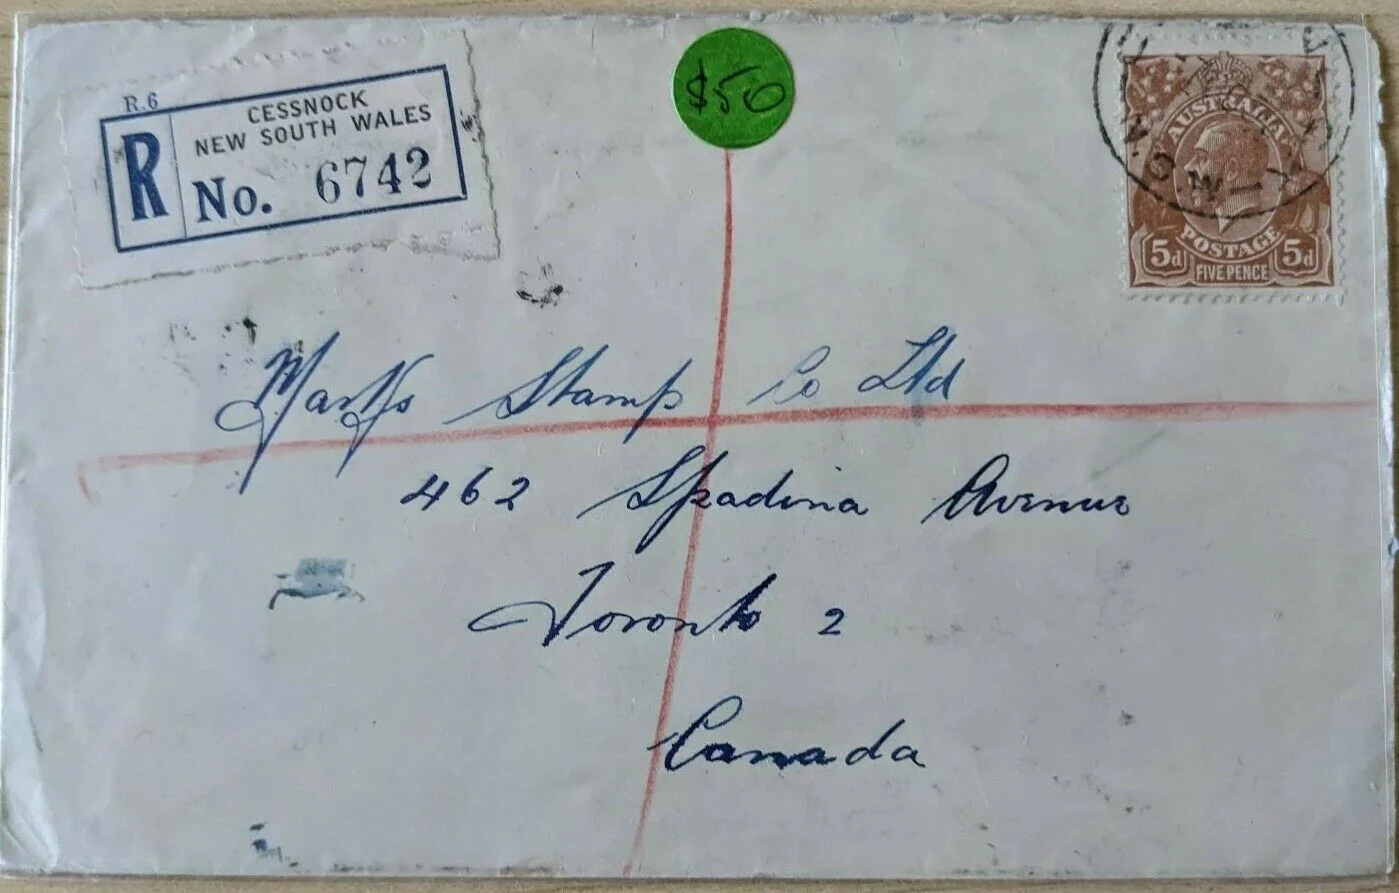 R.6
R
CESSNOCK
NEW SOUTH WALES
No. 6742
$50
AUSTRALIA
POSTAGE
5d FIVE PENCE 5d
Marks Stamp Co Ltd
462 Spadina Avenue
Toronto 2
Canada